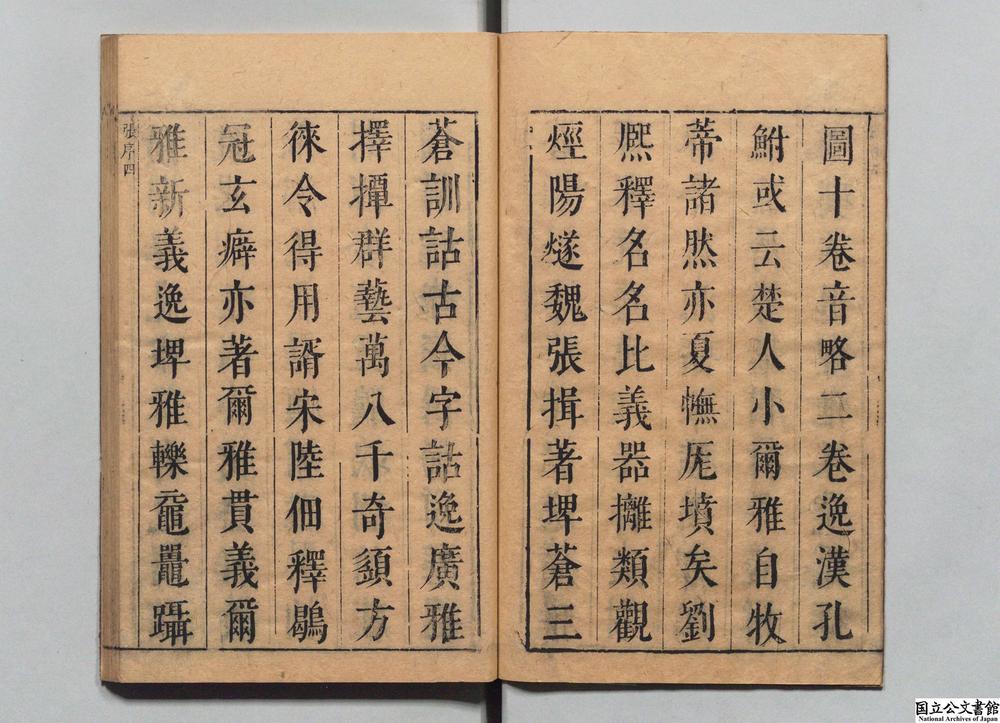 圖十卷音略二卷逸漢孔
鮒或云楚人小爾雅自牧
蒂諸然亦夏憮厖墳矣劉
熈釋名名比義器攡類觀
烴陽燧魏張揖著埤蒼三
蒼訓詁古今字詁逸廣雅
擇撢群藝萬八千奇頴方
徠令得用諝宋陸佃釋鷊
冠玄癖亦著爾雅貫義爾
雅新義逸埤雅轢黿鼂躡
張序四
国立公文書館
National Archives of Japan